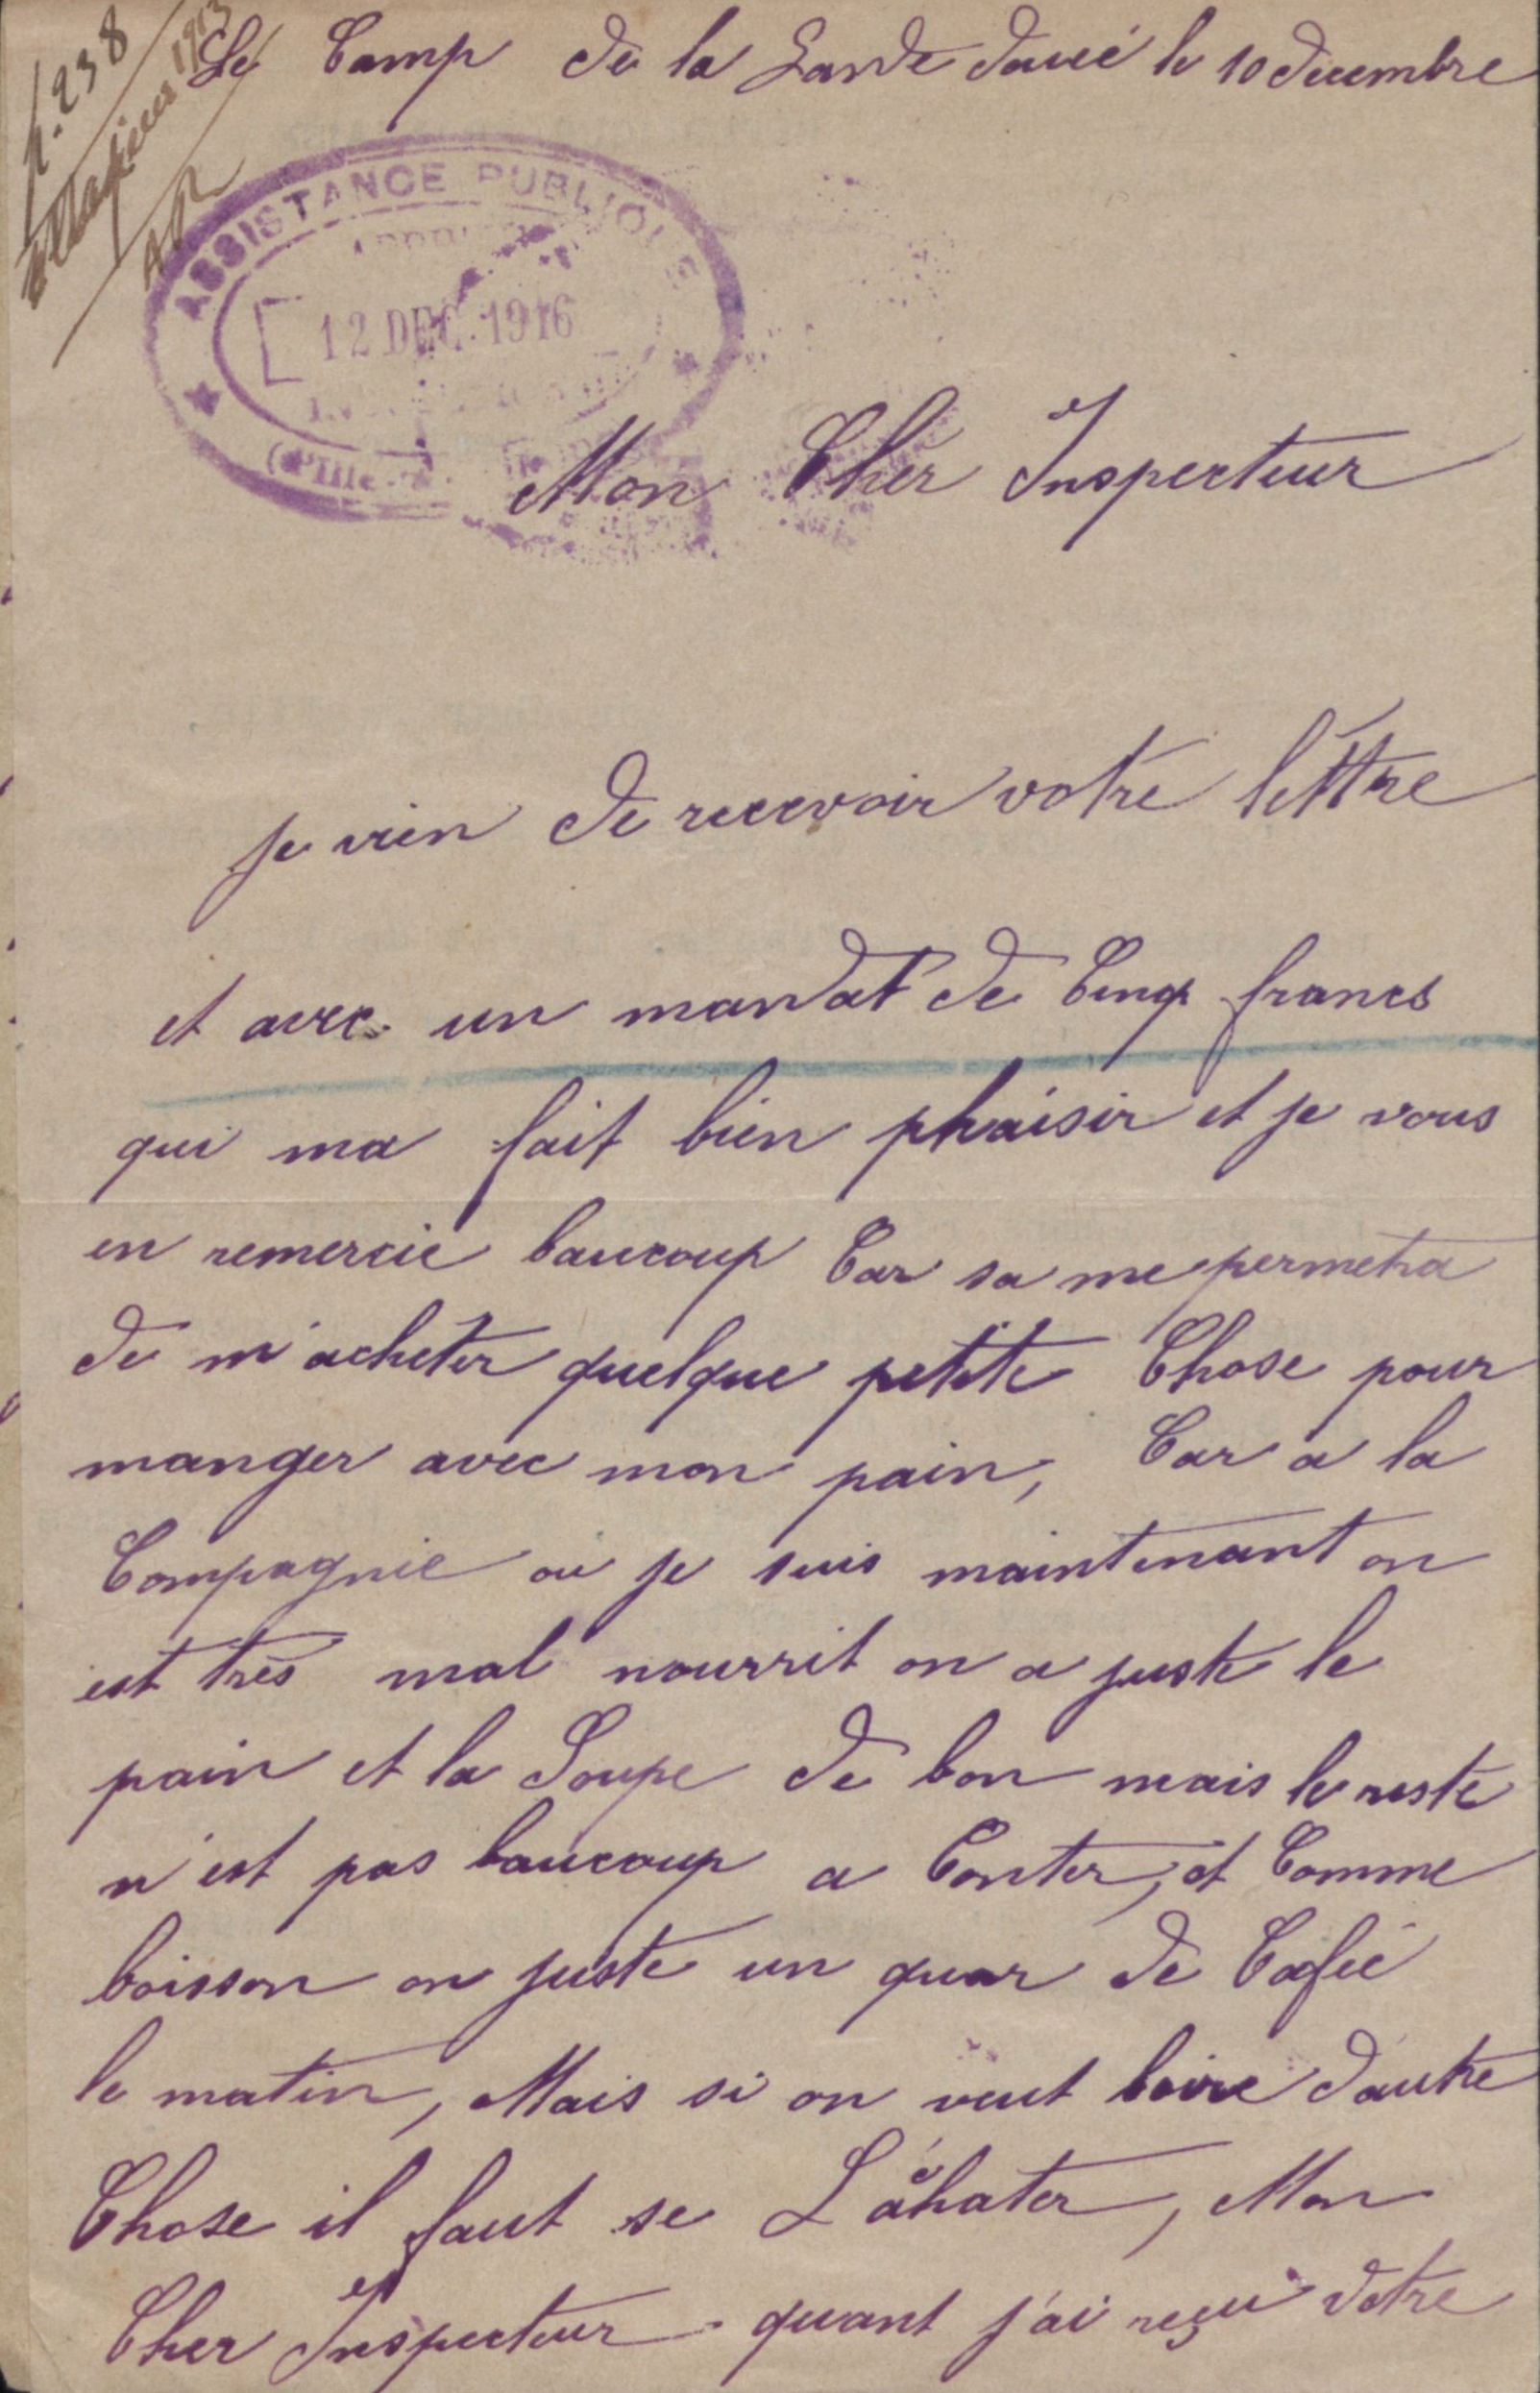 p. 238
1913
Le Camp de la Lande doueé le 10 decembre
ASSISTANCE PUBLIQUE
12 DEC. 1916
(d'Ille-
Mon Cher Inspecteur
je vien de recevoir votre lettre
et avec un mandat de Cinq francs
qui ma fait bien phaisir et je vous
en remercie baucoup Car sa me permetra
de m'acheter quelque petite Chose pour
manger avec mon pain, Car a la
Compagnie ou je suis maintenant on
est très mal nourrit on a juste le
pain et la Soupe de bon mais le reste
n'est pas baucoup a Conter, et Comme
boisson on juste un quar de Cafeé
le matin, Mais si on veut boire d'autre
Chose il faut se L'àhater, Mon
Cher Inspecteur quant j'ai reçu votre